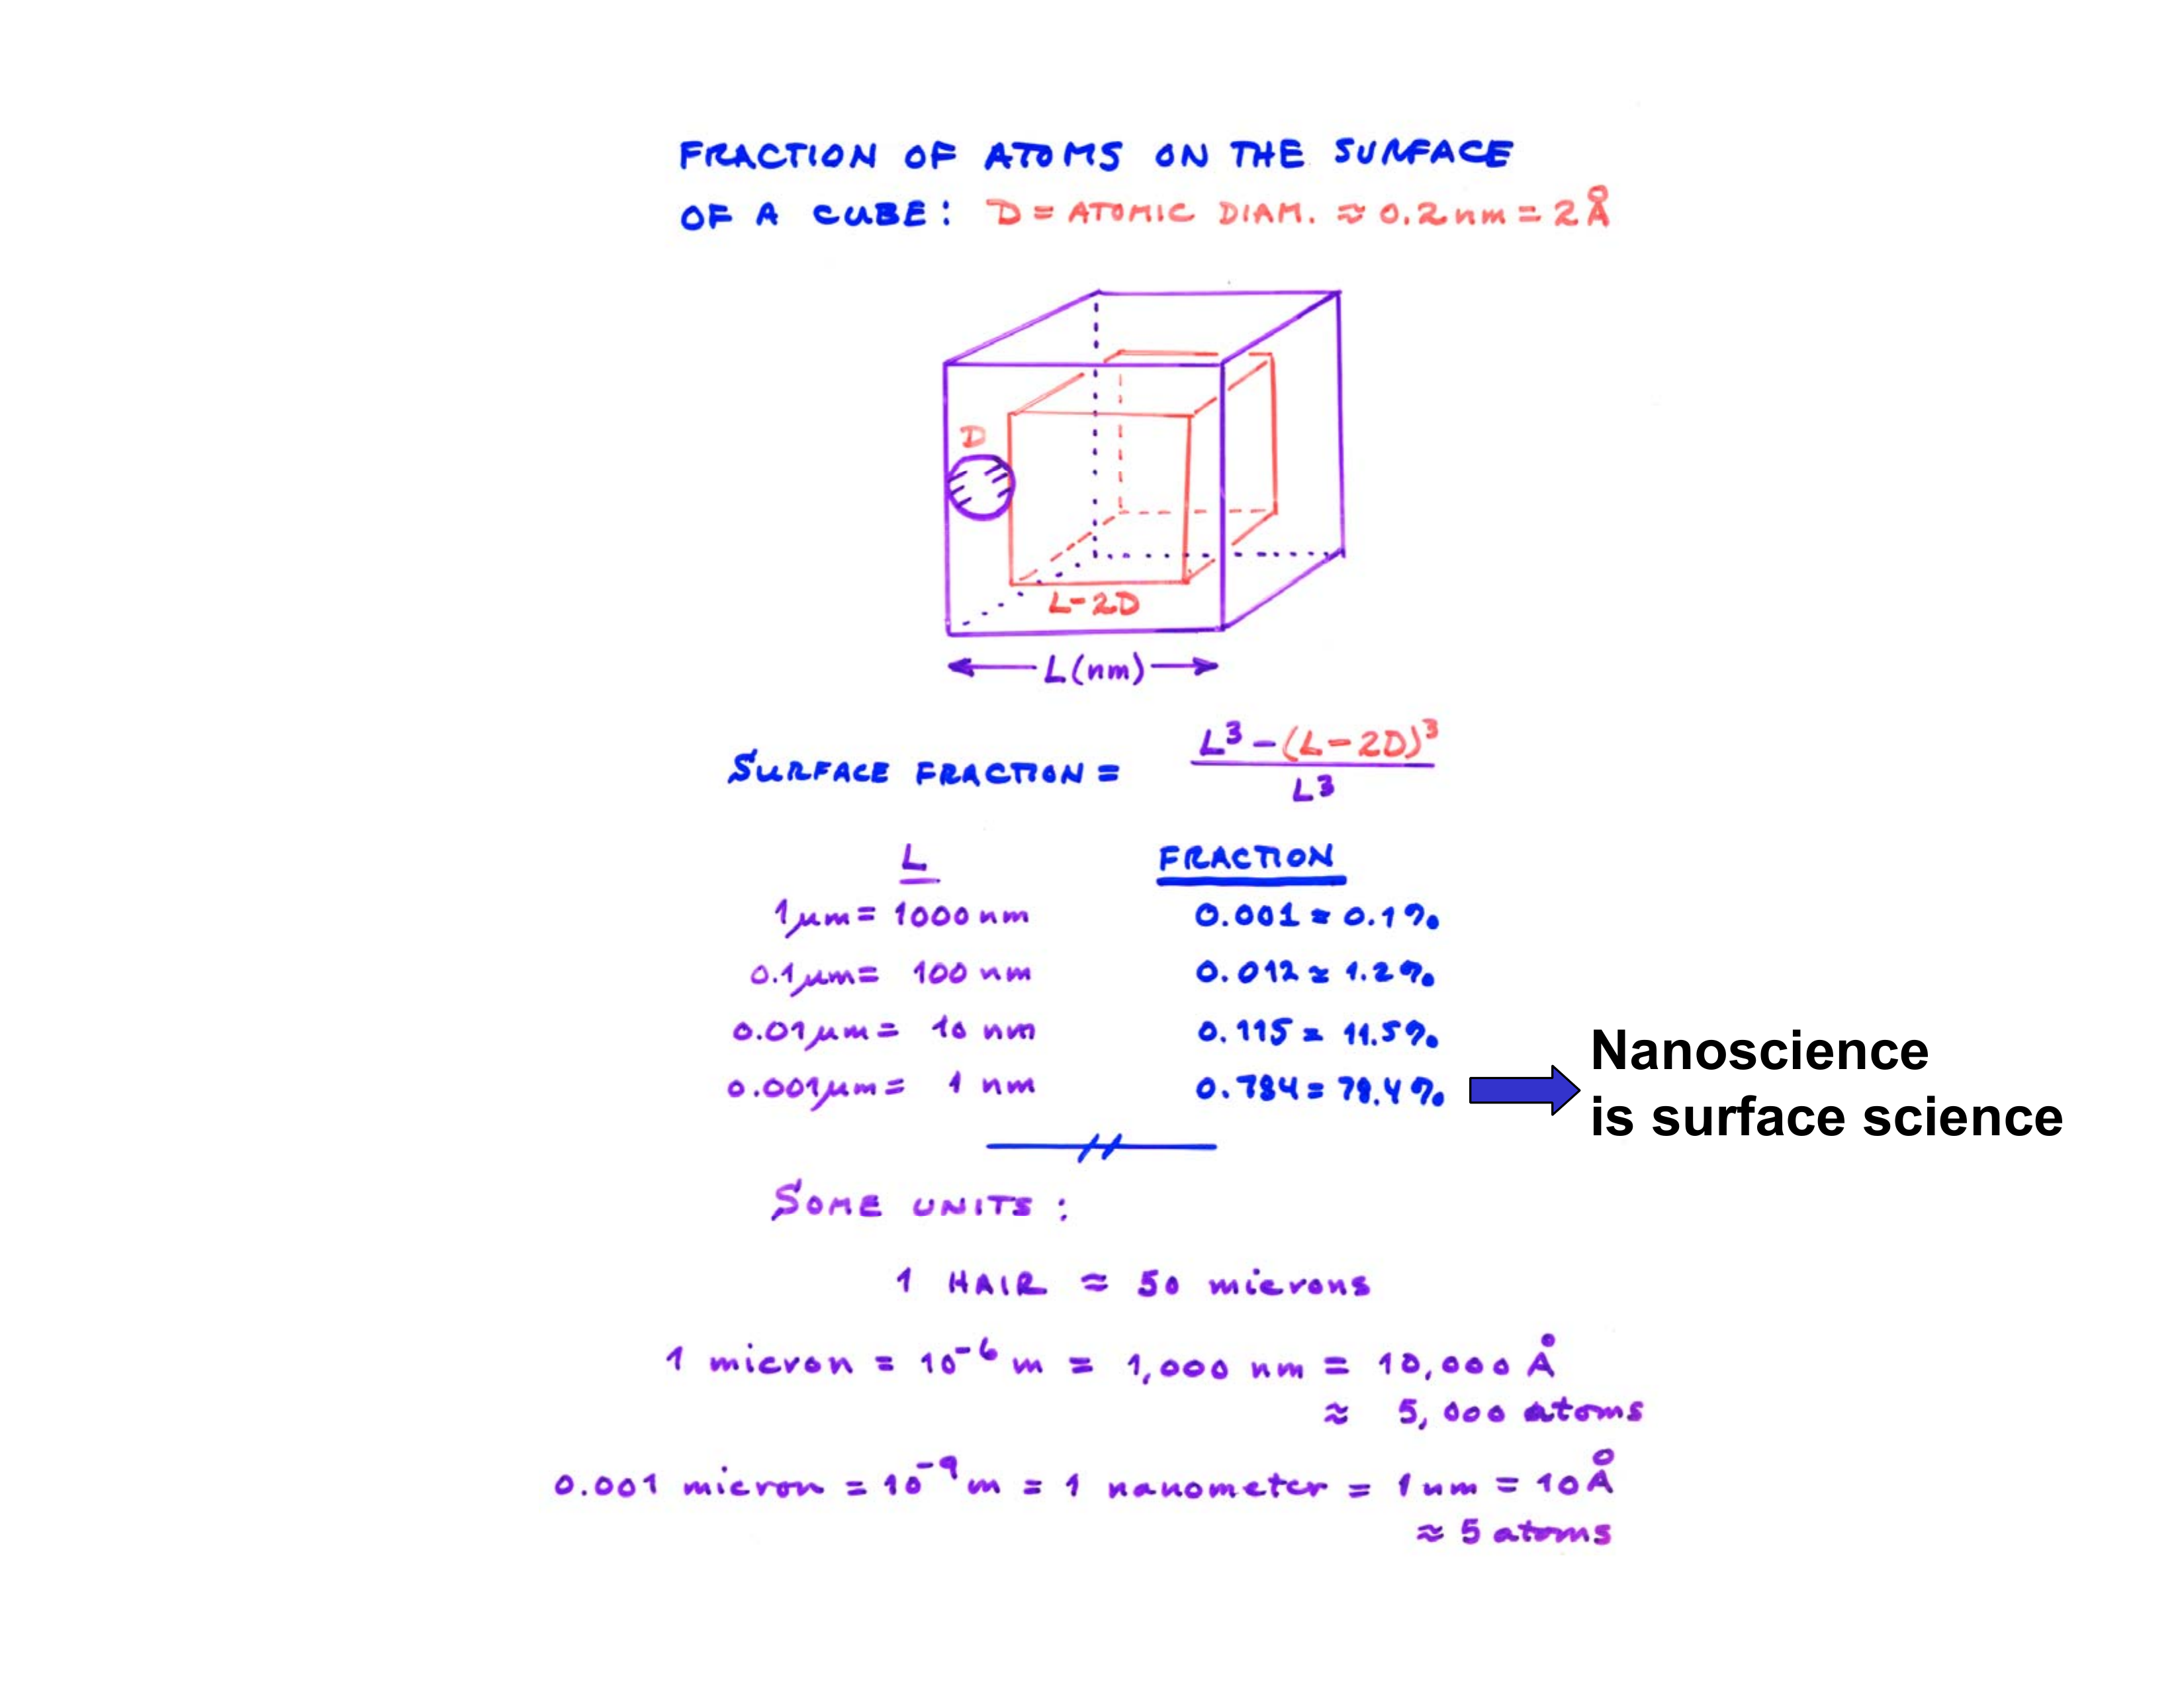 FRACTION OF ATOMS ON THE SURFACE
OF A CUBE: D = ATOMIC DIAM. ≈ 0.2nm = 2Å
D
L-2D
L(nm)
SURFACE FRACTION = L³-(L-2D)³ / L³
L FRACTION
1μm = 1000 nm 0.001 = 0.1%
0.1μm = 100 nm 0.012 ≈ 1.2%
0.01μm = 10 nm 0.115 = 11.5%
0.001μm = 1 nm 0.784 = 78.4%
Nanoscience
is surface science
SOME UNITS:
1 HAIR ≈ 50 microns
1 micron = 10⁻⁶ m = 1,000 nm = 10,000 Å
≈ 5,000 atoms
0.001 micron = 10⁻⁹ m = 1 nanometer = 1nm = 10Å
≈ 5 atoms